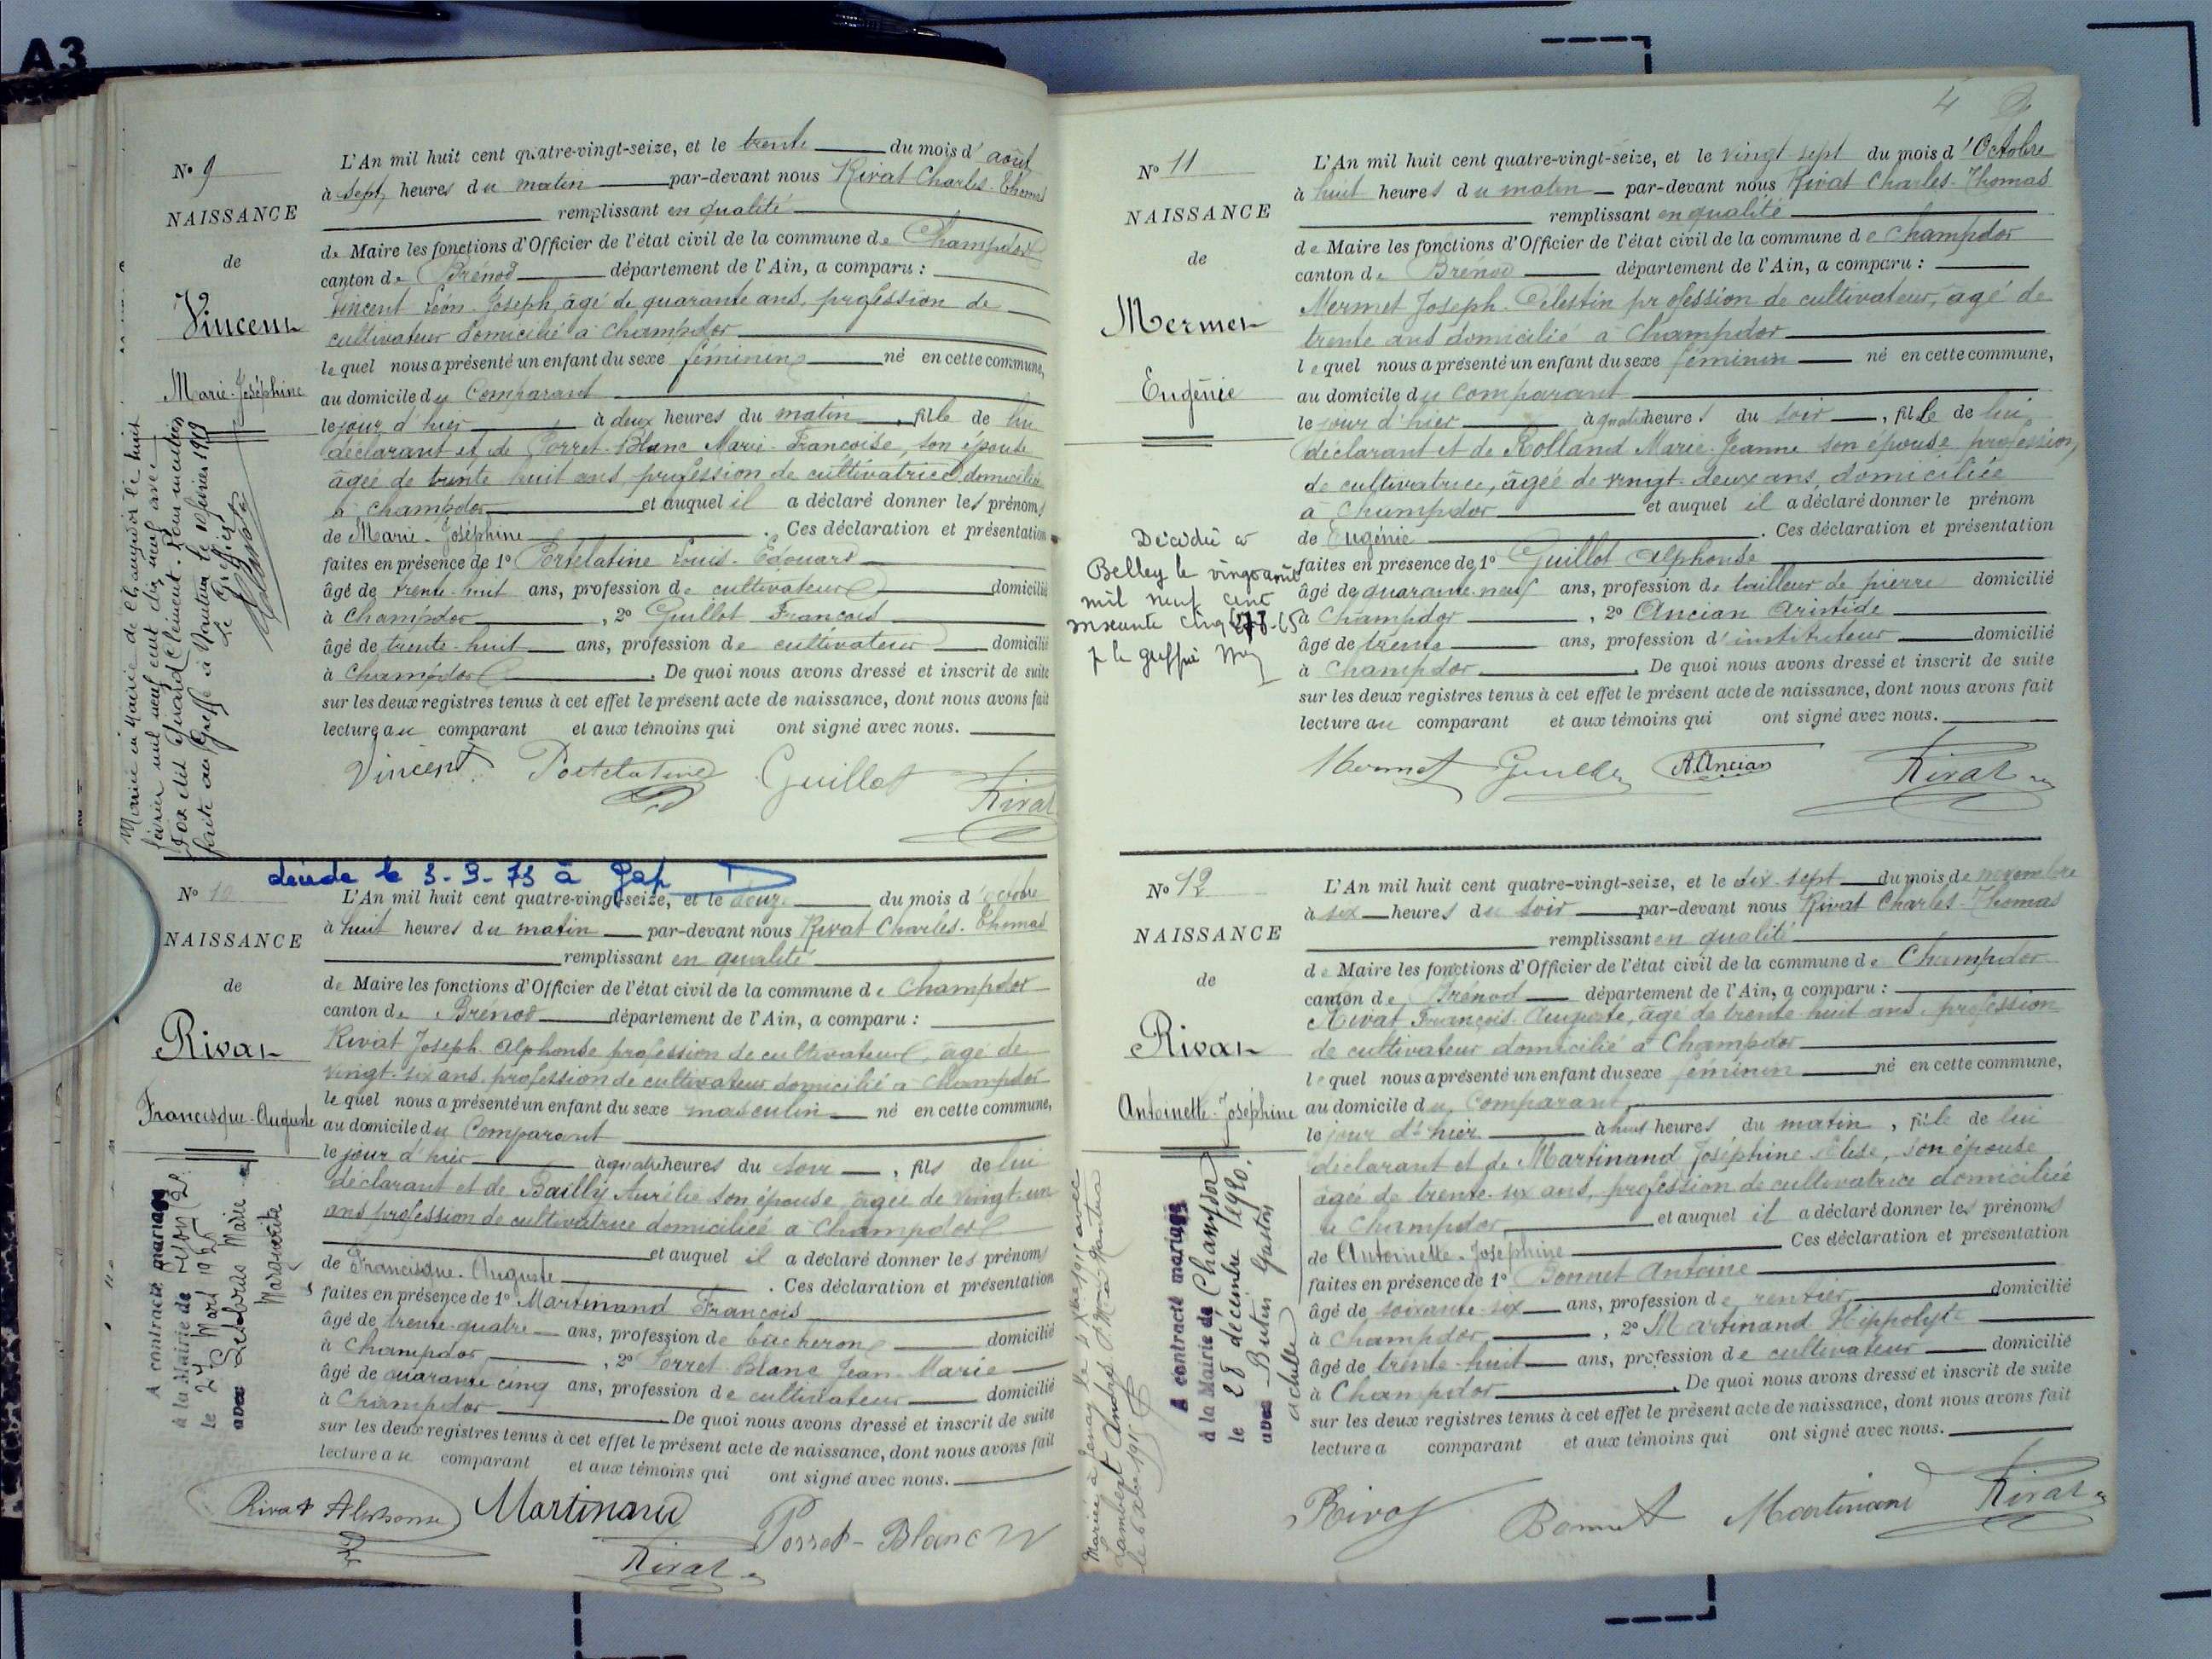 A3
N° 9
NAISSANCE
de
Vincent
Marie-Joséphine
L'An mil huit cent quatre-vingt-seize, et le trente du mois d'août
à sept heures du matin par-devant nous Rivat Charles-Thomas
remplissant en qualité
de Maire les fonctions d'Officier de l'état civil de la commune de Champdor
canton de Brénod département de l'Ain, a comparu :
Vincent Léon-Joseph âgé de quarante ans, profession de
cultivateur domicilié à Champdor
lequel nous a présenté un enfant du sexe féminin né en cette commune,
au domicile du comparant
le jour d'hier à deux heures du matin, fille de lui
déclarant et de Porret-Blanc Marie-Françoise, son épouse
âgée de trente huit ans, profession de cultivatrice domiciliée
à Champdor et auquel il a déclaré donner les prénoms
de Marie-Joséphine. Ces déclaration et présentation
faites en présence de 1° Portelatine Louis-Edouard
âgé de trente-huit ans, profession de cultivateur domicilié
à Champdor, 2° Guillot François
âgé de trente-huit ans, profession de cultivateur domicilié
à Champdor. De quoi nous avons dressé et inscrit de suite
sur les deux registres tenus à cet effet le présent acte de naissance, dont nous avons fait
lecture au comparant et aux témoins qui ont signé avec nous.
Vincent Portelatine Guillot Rivat
février mil neuf cent dix neuf avec
faite au Greffe à Nantua le 10 février 1919
Le Greffier
décédé le 3-9-73 à Gap
N° 10
NAISSANCE
de
Rivat
Francisque-Auguste
L'An mil huit cent quatre-vingt-seize, et le douze du mois d'octobre
à huit heures du matin par-devant nous Rivat Charles-Thomas
remplissant en qualité
de Maire les fonctions d'Officier de l'état civil de la commune de Champdor
canton de Brénod département de l'Ain, a comparu :
Rivat Joseph-Alphonse profession de cultivateur, âgé de
vingt-six ans, profession de cultivateur domicilié à Champdor
lequel nous a présenté un enfant du sexe masculin né en cette commune,
au domicile du comparant
le jour d'hier à quatre heures du soir, fils de lui
déclarant et de Bailly Aurélie son épouse, âgée de vingt-un
ans profession de cultivatrice domiciliée à Champdor
et auquel il a déclaré donner les prénoms
de Francisque-Auguste. Ces déclaration et présentation
faites en présence de 1° Martinand François
âgé de trente-quatre ans, profession de bûcheron domicilié
à Champdor, 2° Porret-Blanc Jean-Marie
âgé de quarante cinq ans, profession de cultivateur domicilié
à Champdor De quoi nous avons dressé et inscrit de suite
sur les deux registres tenus à cet effet le présent acte de naissance, dont nous avons fait
lecture au comparant et aux témoins qui ont signé avec nous.
Rivat Alphonse Martinand Porret-Blanc
Rivat
A contracté mariage
à la Mairie de Lyon (2e
le 24 Mars 1925
avec Marie
Marguerite
4
N° 11
NAISSANCE
de
Mermet
Eugénie
L'An mil huit cent quatre-vingt-seize, et le vingt sept du mois d'Octobre
à huit heures du matin par-devant nous Rivat Charles-Thomas
remplissant en qualité
de Maire les fonctions d'Officier de l'état civil de la commune de Champdor
canton de Brénod département de l'Ain, a comparu :
Mermet Joseph-Célestin profession de cultivateur, âgé de
trente ans domicilié à Champdor
lequel nous a présenté un enfant du sexe féminin né en cette commune,
au domicile du comparant
le jour d'hier à quatre heures du soir, fille de lui
déclarant et de Rolland Marie-Jeanne son épouse profession
de cultivatrice, âgée de vingt-deux ans, domiciliée
à Champdor et auquel il a déclaré donner le prénom
de Eugénie. Ces déclaration et présentation
faites en présence de 1° Guillot Alphonse
âgé de quarante-neuf ans, profession de tailleur de pierre domicilié
à Champdor, 2° Ancian Aristide
âgé de trente ans, profession d'instituteur domicilié
à Champdor. De quoi nous avons dressé et inscrit de suite
sur les deux registres tenus à cet effet le présent acte de naissance, dont nous avons fait
lecture au comparant et aux témoins qui ont signé avec nous.
Mermet Guillot A. Ancian Rivat
Décédée à
Belley le vingt août
mil neuf cent
soixante cinq
N° 12
NAISSANCE
de
Rivat
Antoinette-Joséphine
L'An mil huit cent quatre-vingt-seize, et le dix-sept du mois de novembre
à six heures du soir par-devant nous Rivat Charles-Thomas
remplissant en qualité
de Maire les fonctions d'Officier de l'état civil de la commune de Champdor
canton de Brénod département de l'Ain, a comparu :
Rivat François-Auguste, âgé de trente-huit ans, profession
de cultivateur domicilié à Champdor
lequel nous a présenté un enfant du sexe féminin né en cette commune,
au domicile du comparant
le jour d'hier à huit heures du matin, fille de lui
déclarant et de Martinand Joséphine-Elise, son épouse
âgée de trente-six ans, profession de cultivatrice domiciliée
à Champdor et auquel il a déclaré donner les prénoms
de Antoinette-Joséphine Ces déclaration et présentation
faites en présence de 1° Bonnet Antoine
âgé de soixante-six ans, profession de rentier domicilié
à Champdor, 2° Martinand Hippolyte
âgé de trente-huit ans, profession de cultivateur domicilié
à Champdor. De quoi nous avons dressé et inscrit de suite
sur les deux registres tenus à cet effet le présent acte de naissance, dont nous avons fait
lecture a comparant et aux témoins qui ont signé avec nous.
Rivat Bonnet Martinand Rivat
A contracté mariage
à la Mairie de Champdor
le 28 décembre 1920.
avec Gaston
Achille